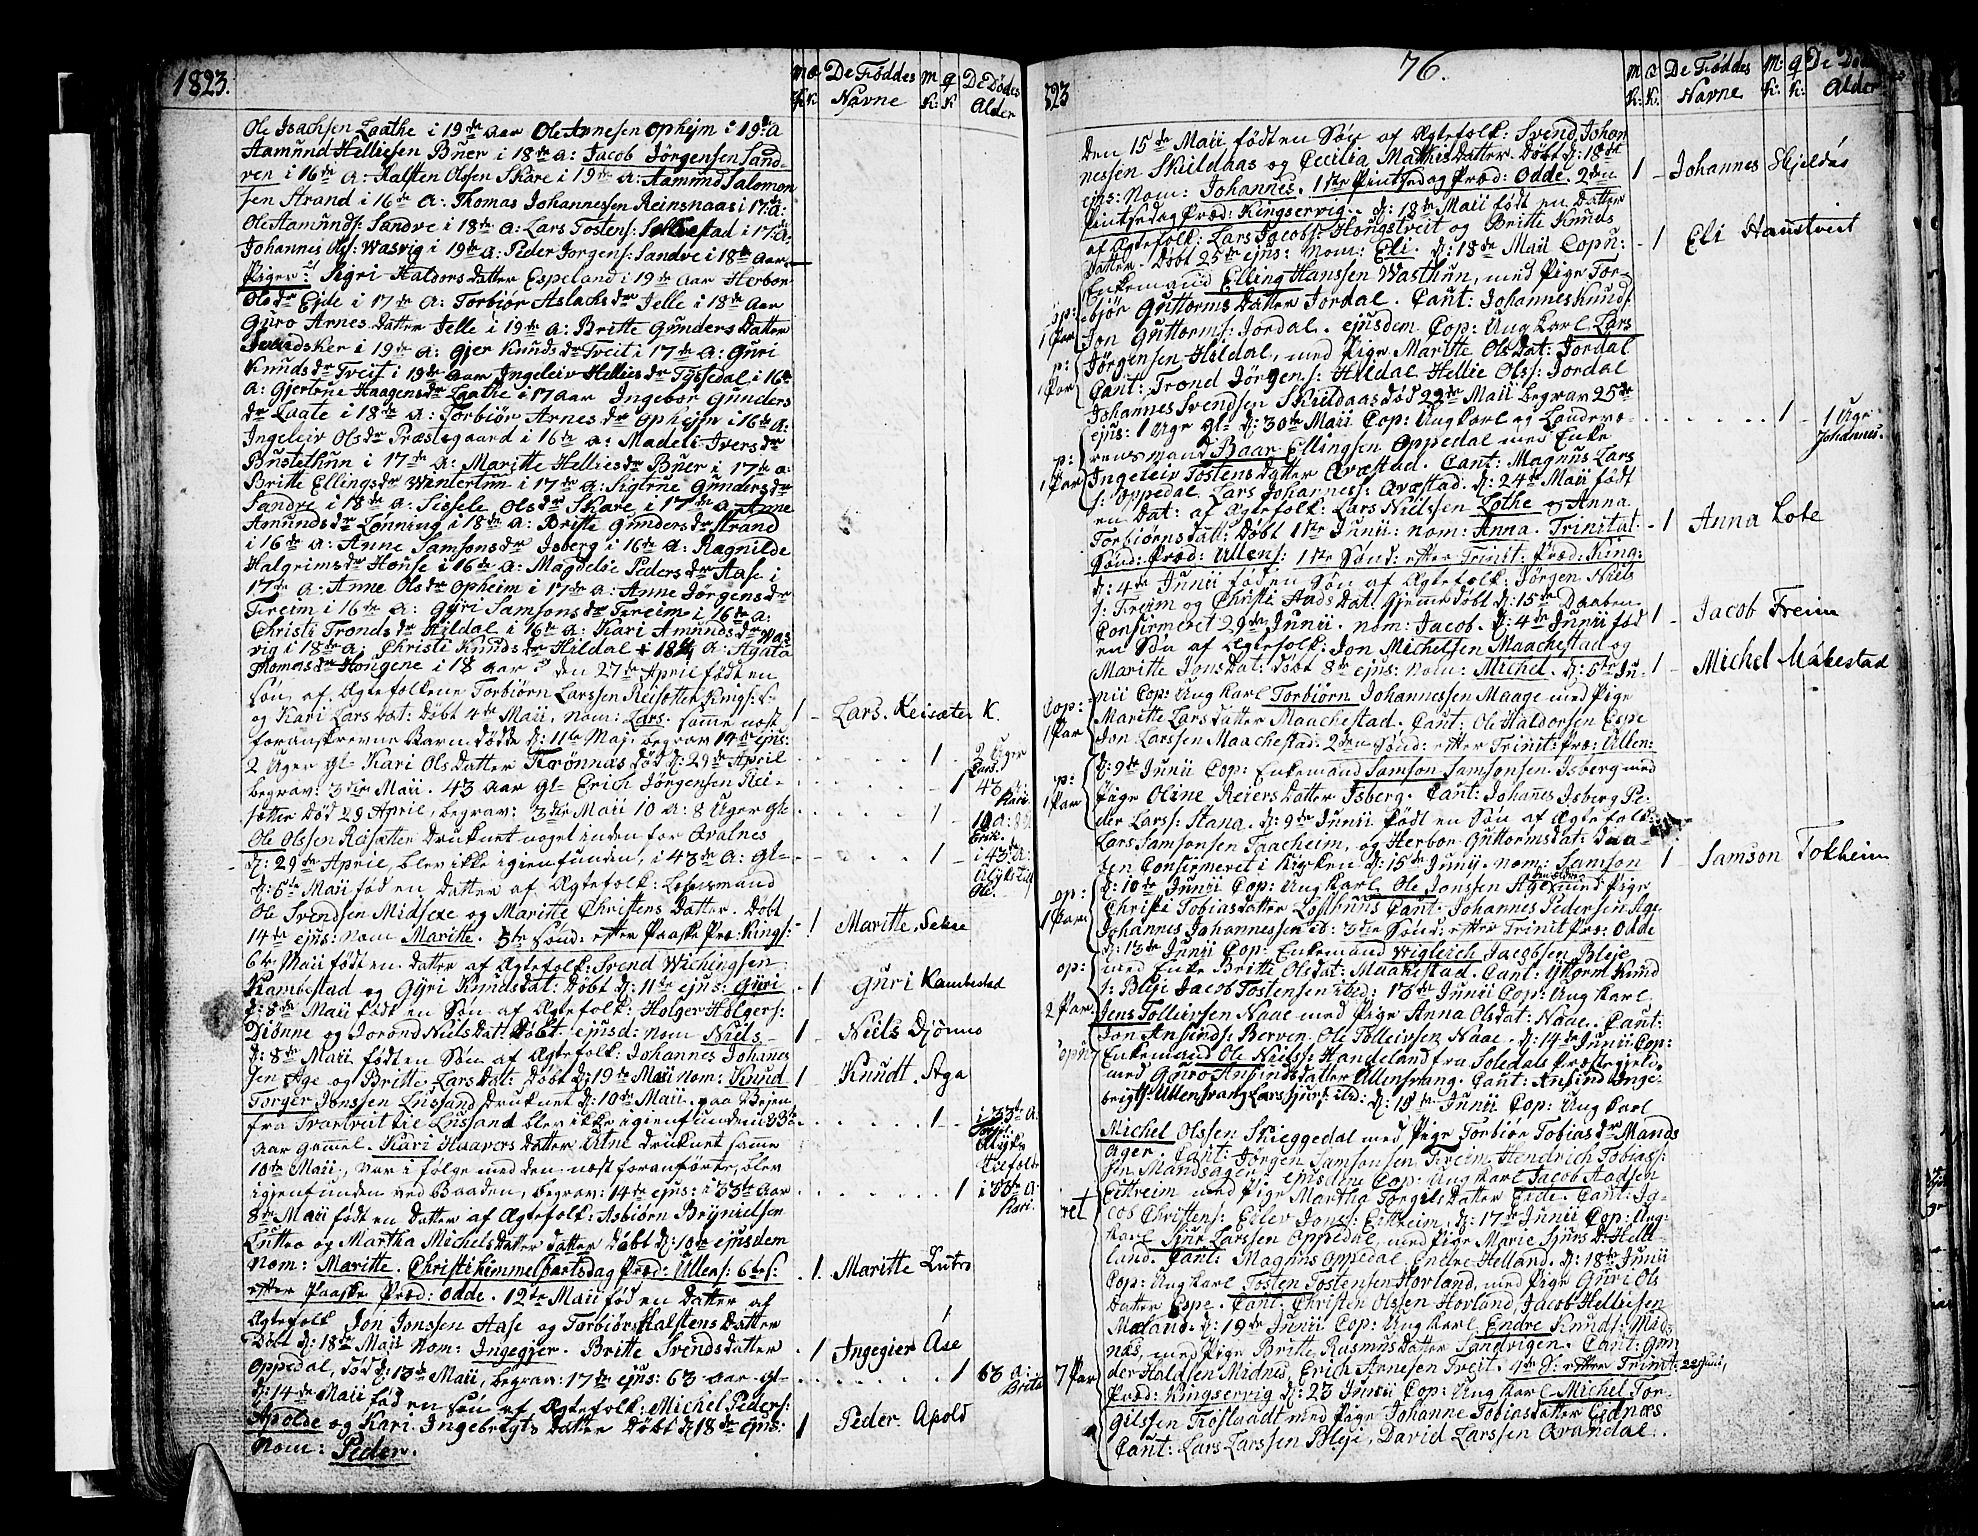 1823.
m. k. q. k. De Føddes Navne m k. q k De Dødes Alder
Ole Isachsen Laathe i 19de aar Ole Arnesen Ophejm i 19de A
Aamund Helliesen Buer i 18de a: Jacob Jörgensen Sand-
ven i 16de a: Halsten Olssen Skare i 19de a: Aamund Salomon
sen Strand i 16de a: Thomas Johannessen Reinsnaas i 17: a:
Ole Aamunds: Sandve i 18de a: Lars Tostens: i 17: a:
Johannes Ols: Wasvig i 19de a: Peder Jorgens: Sandve i 18de aar
Piger: Sigri Halvors Datter Espeland i 19de aar Herbor
Ols dr Eide i 17de a: Torbiør Aslachs dr Jelle i 18de aar
Guro Arnes Datter Jelle i 19de a: Britte Gunders Datter
i 19de a: Gjer Knuds dr Freit i 17de a: Guri
Knuds dr Freit i 19de aar Ingeleiv Hellies dr Tyssedal i 16de
a: Gjertrue Haagens dr Laathe i 17 aar Ingebor Gunders
dr Laate i 18de a: Torbiør Arnes dr Ophejm i 16de a:
Ingeleiv Ols dr Præstegaard i 16de a: Madeli Ivers dr
Bustethun i 17de a: Maritte Hellies dr Buer i 17de a:
Britte Ellings dr Wintertun i 17de a: Sigtrue Gunders dr
Sandve i 18de a: Sissele Ols dr Skare i 17de a: Anne
Amunds dr Lønning i 18de a: Britte Gunders dr Strand
i 16de a: Anne Samsons dr Isberg i 16de a: Ragnilde
Halgrims dr Honse i 16de a: Magdelie Peders dr Aase i
17de a: Anne Ols dr Opheim i 17de a: Anne Jørgens dr
Freim i 16de a: Gyri Samsons dr Freim i 16de a:
Christi Tronds dr Hildal i 16de a: Kari Amunds dr Was
vig i 18de a: Christi Knuds dr Hildal a: Agata
Thomas dr Hongene i 18 aar den 27de April født en
Søn af Ægtefolkene Torbiørn Larssen Reisetter Kings: S.
og Kari Lars Dat: Døbt 4de Maii, nom: Lars. samme nest 1 - Lars. Reisæter K.
foranskrevne Barn døde d: 11te Maj: begrav 14de ejus: 1 2 Uger
2 Uger gl. Kari Olsdatter Krønnæs død d: 29de April Lars.
begrav: 3die Maii. 43 aar gl. Erich Jörgensen Rei- 1 43 Kari.
sætter Død 29 April, begrav: 3die Maii 10 a: 8 Uger gl. 1
Ole Olssen Reisætter Druknet noget inden for Qvalnes Erik.
d: 29de April, blev ikke igienfunden, i 43de a: gl. 1 i 43de a:
d: 6te Maii fød en Datter af Ægtefolk: Lehnsmand Ole.
Ole Svendsen Midsexe og Maritte Christens Datter. Døbt
14de ejus: nom Maritte. 5te Sønd: efter Paaske Præ: Kings: 1 Maritte Sekse
6te Maii født en Datter af Ægtefolk: Svend Wichingsen
Kambestad og Gyri Knudsdat: Døbt d: 11te ejus: Guri 1 Guri Kambestad
d: 8de Maii født en Søn af Ægtefolk: Holger Holgers:
Djønne og Jorond Niels Dat: Døbt ejusd: nom Niels 1 Niels Djönno
d: 8de Maii født en Søn af Ægtefolk: Johannes Johanes
sen Age og Britte Lars Dat: Døbt d: 19de Maii nom: Knud 1 Knudt Aga
Torger Jonssen Lussand Druknet d: 10de Maii paa Vejen
fra Tvartveit til Lussand blev ikke igienfunden 33te 1 i 33te a:
aar gammel. Kari Haavers Datter Utne druknet samme
10de Maii, var i følge med den nest foranførte, blev
igjenfunden ved Baaden, begrav: 14de ejus: i 33te aar 1 i 33te a: Kari.
8de Maii født en Datter af Ægtefolk: Asbiørn Brynielsen
Luttro og Martha Michels Datter datter Døbt d: 10de ejusdem
nom: Maritte. Christi himmelfartsdag Præd: Ullens: 6te S: 1. Maritte Lutro
efter Paaske Præd: Odde. 12te Maii fød en Datter af
Ægtefolk Jon Jonssen Aase og Torbiør Halstens Datter
Døbt d: 18de Maii nom: Ingegjer. Britte Svends datter 1 Ingegier Åse
Oppedal, død d: 13de Maii, begrav: 17de ejus: 63 aar gl. 1 63 a: Brita
d: 14de Maii fød en søn af Ægtefolk: Michel Peders:
Apolde og Kari Ingebregts Datter Døbt d: 18de ejus: 1 Peder Apold
nom: Peder.
823 76.
m k: q k. De Føddes Navne m: k. q k. De Døde Alder
Den 15de Maii født en Søn af Ægtefolk: Svend Johan
nessen Skildaas og Cecilia Mathis datter. Døbt d: 18de
ejus: Nom: Johannes. 1ste Pintsedag Præd: Odde. 2den 1 - Johannes Skjeldås
Pintsedag Præd: Kingservig. d: 18de Maii født en Datter
af Ægtefolk: Lars Jacobs: Hougstveit og Britte Knuds
Datter. Døbt 25de ejus: Nom: Eli. d: 18de Maii Copu: 1 Eli Haustveit
Enkemand Elling Hanssen Wasthun, med Pige Tor-
björ Guttorms Datter Jordal. Caut: Johannes Knuds:
Jon Guttorms: Jordal. ejusdem Cop: Ungkarl Lars
Jörgensen Hildal, med Pige Maritte Ols Dat: Jordal
Caut: Trond Jörgens: Hildal Hellie Olss: Jordal
Johannes Svendsen Skildaas død 22de Maii begrav 25de
ejus: 1 Uge gl. d: 30te Maii Cop: Ungkarl og Landeve- 1 - 1 Uge Johannes.
rensmand Baar Ellingsen Oppedal med Enke
Ingeleiv Tostens Datter Qvæstad. Caut: Magnus Lars
s: Oppedal Lars Johanness: Qvæstad. d: 24de Maii født
en Dat: af Ægtefolk: Lars Nielssen Lothe og Anna
Torbiörnsdatt: Døbt 1ste Junii: nom: Anna. Trinitat: 1 Anna Lote
Sønd: Præd: Ullens: 1ste Sønd: efter Trinit: Præd: King:
d: 4de Junii fød en Søn af Ægtefolk: Jörgen Niels
s: Freim og Christi Aads Dat. hjemmedøbt d: 15de Daaben
Confirmeret 29de Junii. nom: Jacob. d: 4de Junii fød 1 - Jacob Freim
en Søn af Ægtefolk: Jon Michelsen Maachestad og
Maritte Jonsdat: døbt 8de ejus: Nom: Michel. d: 5te Ju- 1 - Michel Måkestad
nii Cop: Ungkarl Torbiörn Johannessen Maage med Pige
Maritte Lars datter Maachestad. Caut: Ole Haldorsen Espe
Jon Larssen Maachestad. 2den Sønd: efter Trinit: Præ: Ullen:
d: 9de Junii Cop: Enkemand Samson Samsonsen Isberg med
Pige Oline Reiers Datter Isberg. Caut: Johanes Isberg Pe-
der Larss: Hana. d: 9de Junii Født en Søn af Ægtefolk:
Lars Samsonsen Taacheim, og Herbor Guttormsdat: Daa-
ben Confirmeret i Kirken d: 15de Junii. nom: Samson 1 - Samson Tokheim
d: 10de Junii Cop: Ungkarl Ole Jonssen Age med Pige
Christi Tobias datter Lofthuus Caut: Johannes Pedersen Age
Johannes Johannessen ib: 3die Sønd: efter Trinit Præ: Odde
d: 13de Junii Cop: Enkemand Wigleich Jacobsen Bleje
med Enke Britte Olsdat: Maakestad. Caut: Guttorm Knud
s: Bleje Jacob Tostensen ibid: 13de Junii Cop: Ungkarl
Jens Tolleivsen Naae med Pige Anna Olsdat: Naae. Caut:
Jon Ansunds: Berven. Ole Tolleivsen Naae. d: 14de Junii Cop:
Enkemand Ole Nielss: Handeland fra Soledals Præstegjeld
med Guro Ansundsdatter Ullensvang. Caut: Ansund Inge-
brigts: Ullensvang Lars Sjurs: ibid: d: 15de Junii Cop: Ungkarl
Michel Olssen Skieggedal med Pige Torbiör Tobias dr Mands
ager. Caut: Jörgen Samsonsen Freim, Hendrich Tobias
sen Mandsager ejusdem Cop: Ungkarl Jacob Aadsen
Eitreim med Pige Martha Torgils Datter Eide. Caut: Ja-
cob Christens: Eidev Jons: Eittheim, d: 17de Junii Cop: Ung-
karl Sjur Larssen Oppedal, med Pige Marie Sjurs Dr Helle-
land. Caut: Magnus Oppedal, Endre Helland. d: 18de Junii
Cop: Ungkarl Tosten Tostensen Hovland, med Pige Guri Ols
Datter Espe. Caut: Christen Olssen Hovland, Jacob Helliesen
Mæland. d: 19de Junii Cop: Ungkarl Endre Knuds: Mid-
næs, med Pige Britte Rasmus datter Sandvigen. Caut: Gun
der Haldsen Midnes, Erich Arnesen Freit. 4de S: efter Trinit: 22 Juni,
Præd: Kingservig d: 23 Junii Cop: Ungkarl Michel Tor-
gilsen Trøstaadt med Pige Johanne Tobias datter Eidnæs
Caut: Lars Larssen Bleje, David Larssen Qvandal.
op: 1 Par
p: 1 Par
p: 1 Par
Cop: 1 Par
p: 1 Par
op: 1 Par
op: 2 Par
7 Par